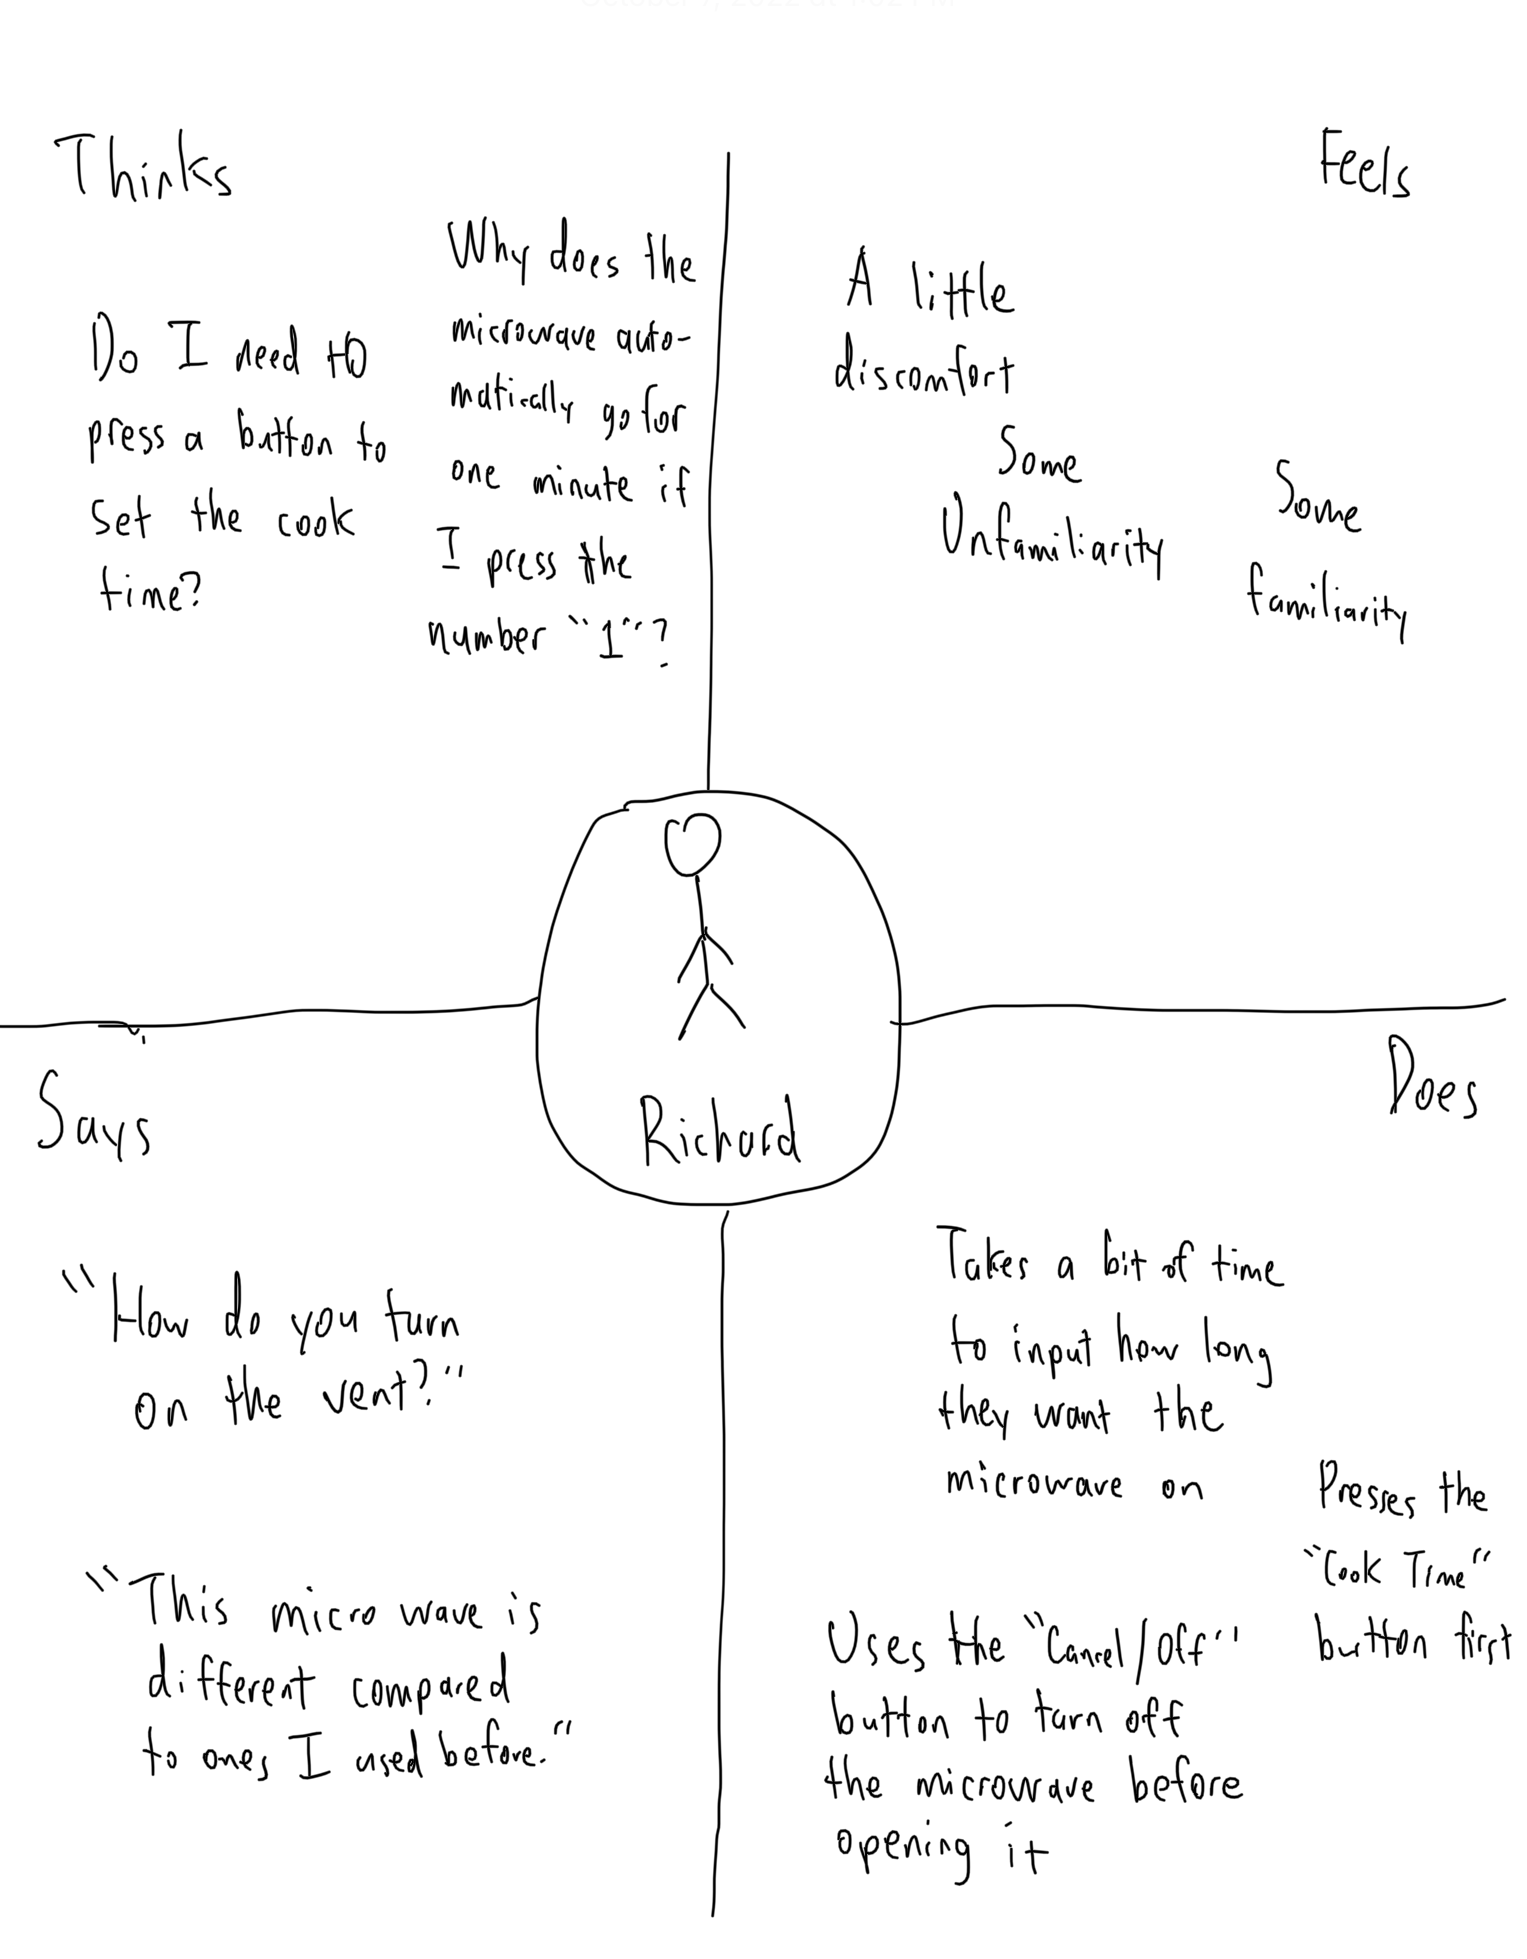 Thinks
Do I need to
press a button to
set the cook
time?
Why does the
microwave auto-
matically go for
one minute if
I press the
number "1"?
Feels
A little
discomfort
Some
Unfamiliarity
Some
familiarity
Richard
Says
"How do you turn
on the vent?"
"This micro wave is
different compared
to ones I used before."
Does
Takes a bit of time
to input how long
they want the
microwave on
Presses the
"Cook Time"
button first
Uses the "Cancel/Off"
button to turn off
the microwave before
opening it